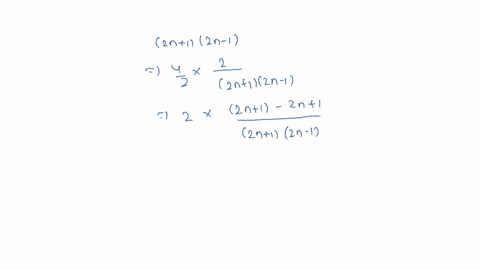 (2n+1) (2n-1)
=) 4/2 × 2/(2n+1)(2n-1)
=) 2 × (2n+1) - 2n+1/(2n+1) (2n-1)